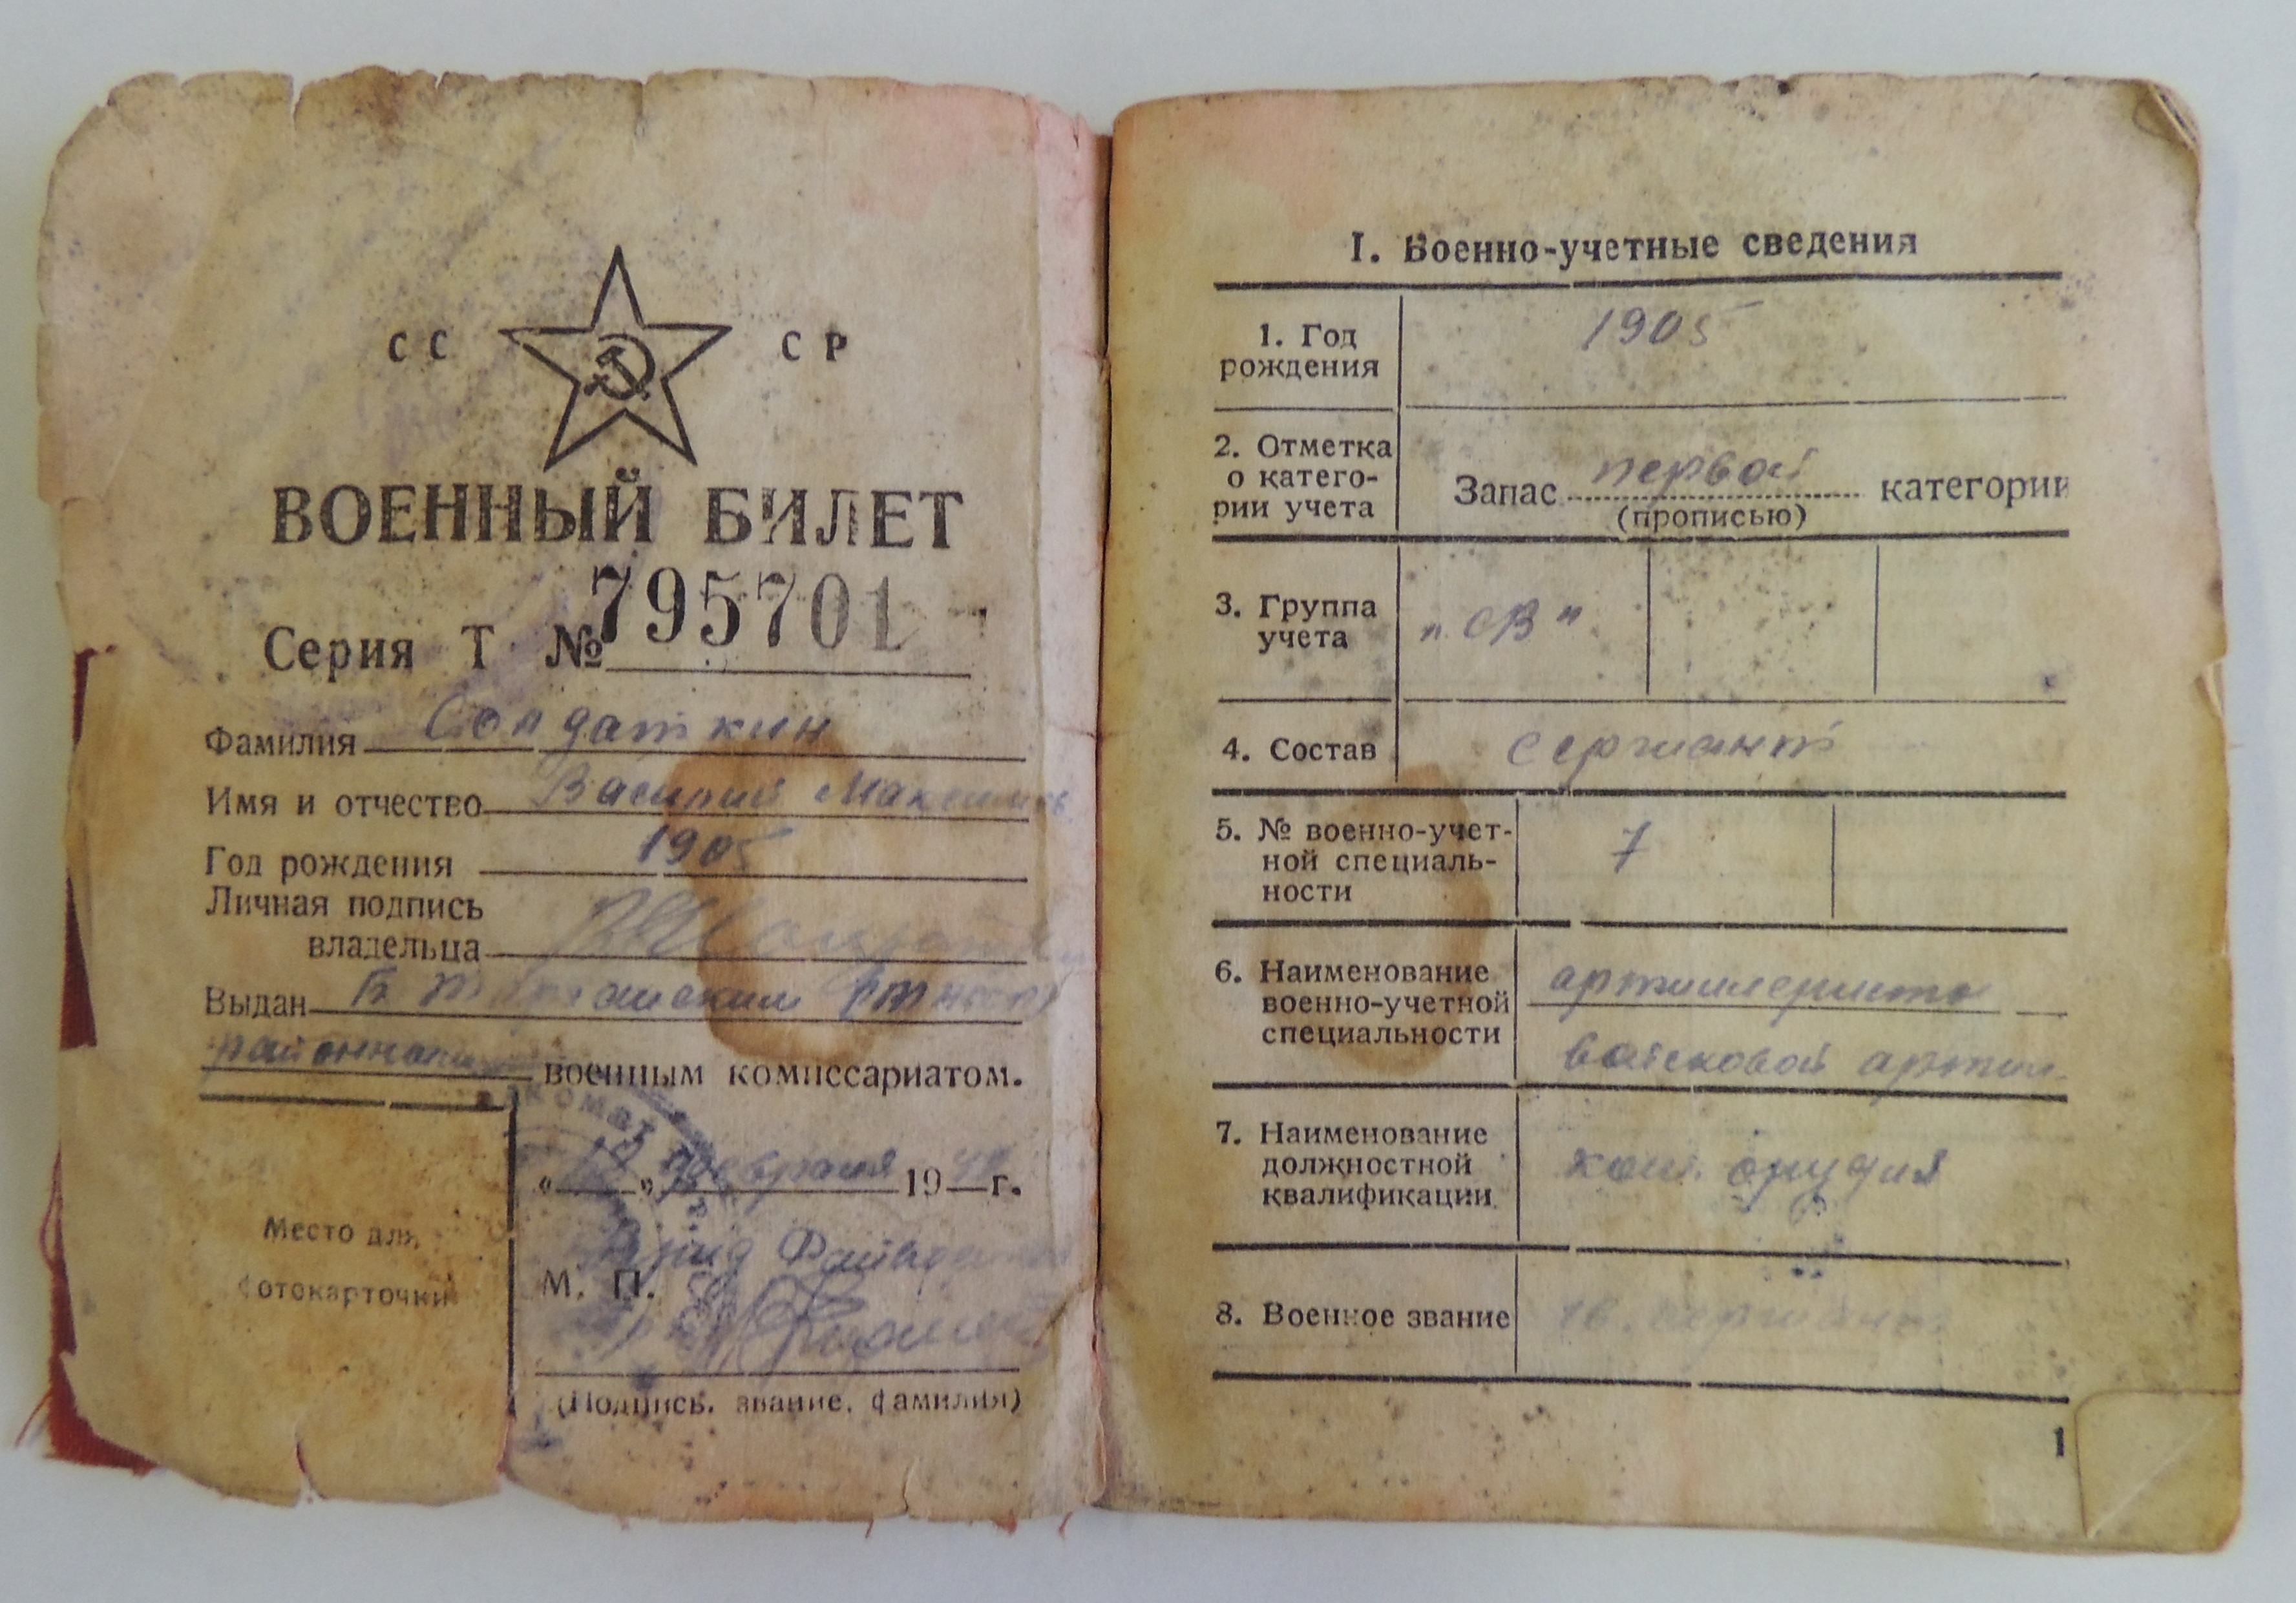 СС СР
ВОЕННЫЙ БИЛЕТ
Серия Т № 795701
Фамилия Солдаткин
Имя и отчество Василий Максимов
Год рождения 1905
Личная подпись
владельца
Выдан
районным военным комиссариатом.
" " февраля 19 г.
Место для
фотокарточки
М. П.
(Подпись, звание, фамилия)
I. Военно-учетные сведения
1. Год
рождения
1905
2. Отметка
о катего-
рии учета
Запас первой категории
(прописью)
3. Группа
учета
„СВ"
4. Состав
сержант
5. № военно-учет-
ной специаль-
ности
7
6. Наименование
военно-учетной
специальности
артиллеристы
войсковой артил.
7. Наименование
должностной
квалификации
ком. орудия
8. Военное звание
сержант
1